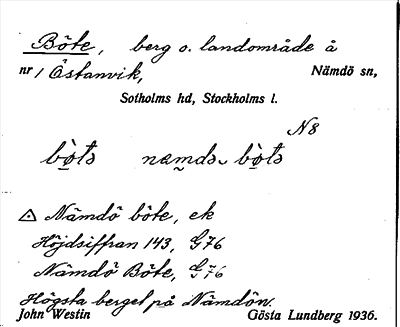 Böte, berg o. landområde å
nr 1 Östanvik, Nämdö sn,
Sotholms hd, Stockholms l.
N8
Nämdö böte, ek
Höjdsiffran 143, G76
Nämdö Böte, G76
Högsta berget på Nämdön.
John Westin Gösta Lundberg 1936.